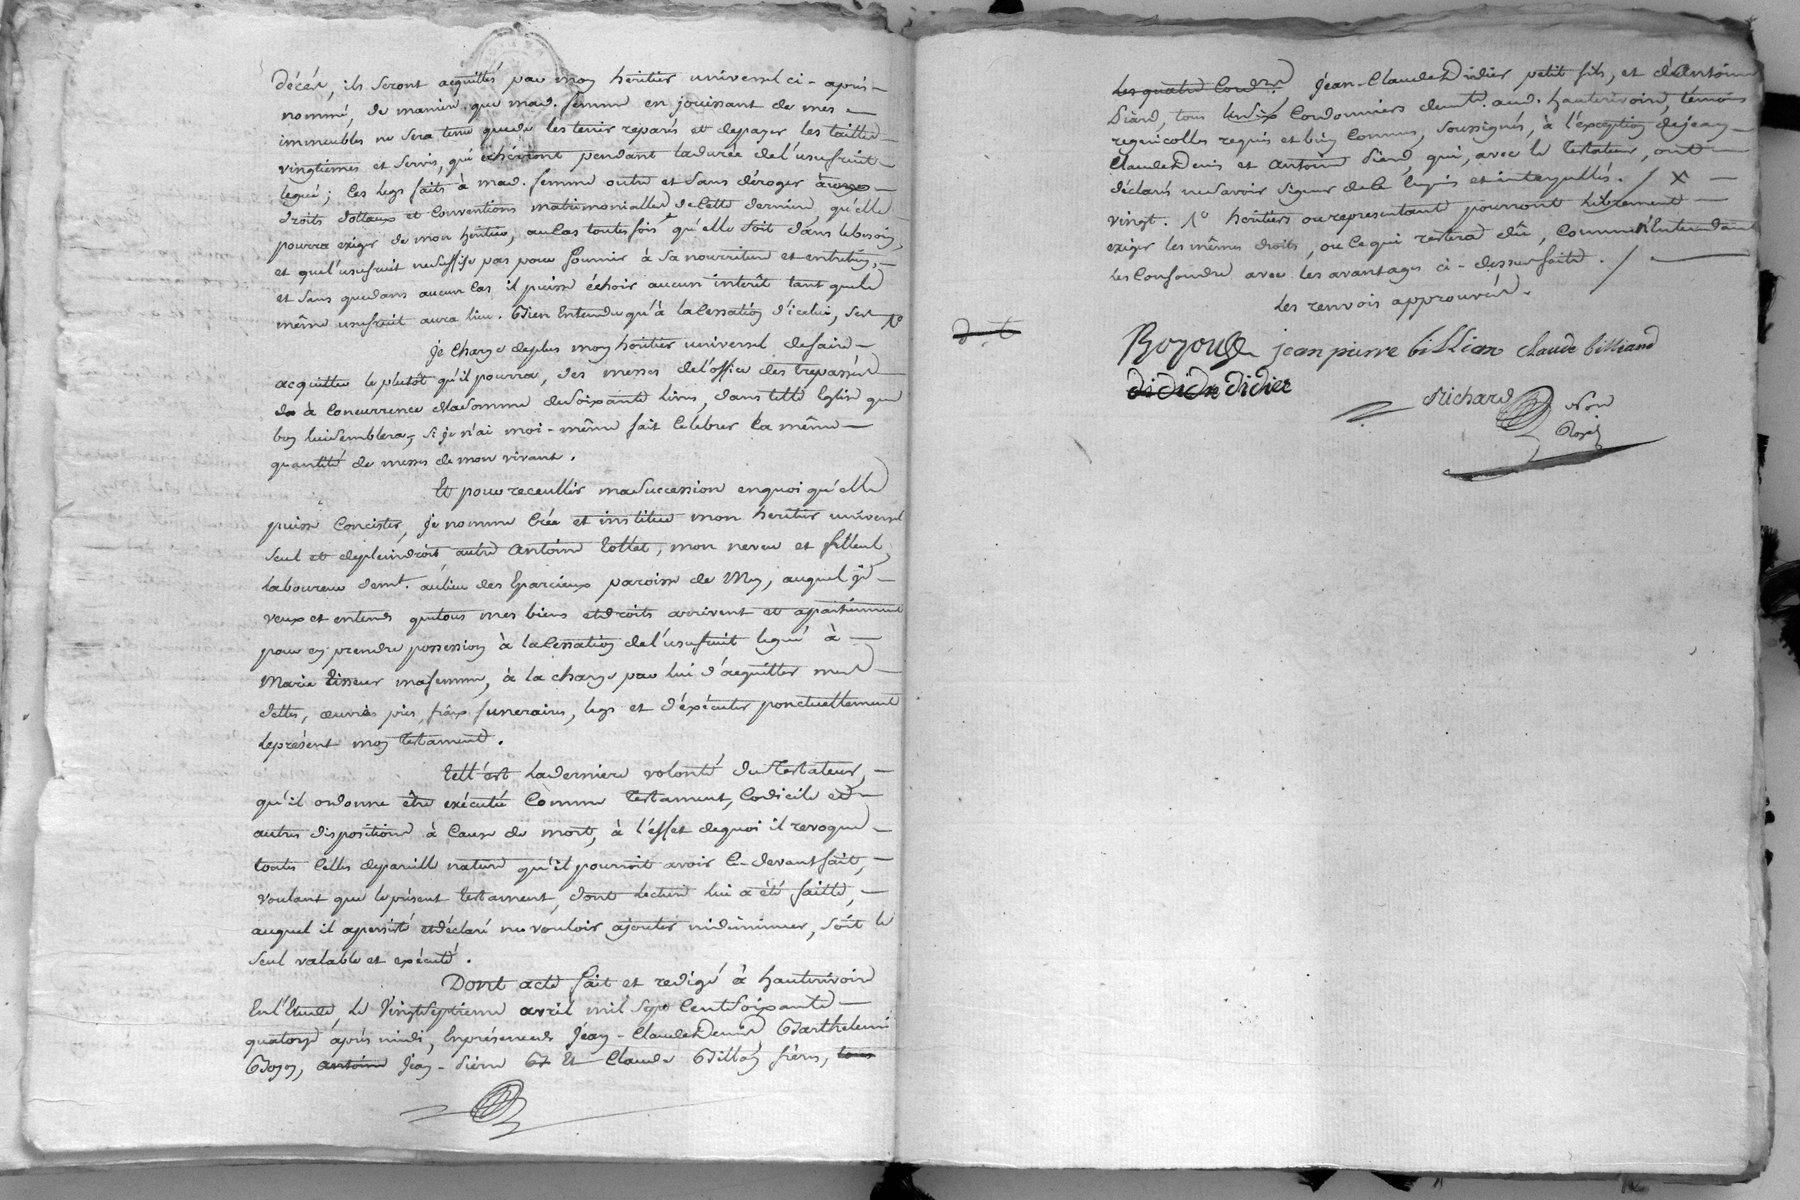 décès, ils seront acquittés par mon heritier universel ci-après
nommé, de maniere que mad. femme en jouissant de mes
immeubles ne sera tenue que de les tenir reparés et de payer les tailles
vingtiemes et servis, qui echéeront pendant la durée de l'usufruit
legué; ces legs faits à mad. femme outre et sans déroger à
droits dottaux et conventions matrimonialles de cette derniere, qu'elle
pourra exiger de mon heritier, au cas toutes fois qu'elle soit dans le besoin,
et que l'usufruit ne suffise pas pour fournir à sa nourriture et entretien,
et sans que dans aucun cas il puisse échoir aucun interêt tant que le
même usufruit aura lieu. Bien entendu qu'à la cessation d'icelui, ses
je charge de plus mon heritier universel de faire
acquitter le plutôt qu'il pourra, des messes de l'office des trepassés
à concurrence de la somme de soixante livres, dans telle Eglise que
bon lui semblera, si je n'ai moi-même fait celebrer la même
quantité de messes de mon vivant.
Et pour receuillir ma succession en quoi qu'elle
puisse concister, je nomme crée et institue mon heritier universel
seul et de plein droit autre Antoine Tollet, mon neveu et filleul,
laboureur demt. au lieu des Eparcieux paroisse de Mes, auquel je
veux et entends que tous mes biens et droits arrivent et appartiennent
pour en prendre possession à la cessation de l'usufruit legué à
Marie Tisseur ma femme, à la charge par lui d'acquitter mes
dettes, œuvres pies, frais funeraires, legs et d'éxécuter ponctuellement
le présent mon testament.
Tell'est la derniere volonté du Testateur,
qu'il ordonne être exécutée comme testament, codicile et
autres dispositions à cause de mort, à l'effet de quoi il revoque
toutes celles de pareille nature qu'il pourroit avoir ci-devant fait,
voulant que le présent testament, dont lecture lui a été faitte,
auquel il a persisté et déclaré ne vouloir ajouter ni diminuer, soit le
seul valable et exécuté.
Dont acte fait et redigé à hauterivoire
en l'Etude, le vingt septieme avril mil sept cent soixante
quatorze après midi, en présence de Jean-Claude Denis Barthelemi
Antoine Jean-Pierre Et Claude Billan freres, tous
les quatre Jean-Claude Didier petit fils, et d'Antoine
Piard, tous les six Cordonniers demt. aud. hauterivoire, témoins
regnicolles requis et bien connus, soussignés, à l'exception de jean
Claude Denis et Antoine Piard, qui, avec le testateur, ont
déclaré ne savoir signer de ce enquis et interpellés. / X
vingt. 1º heritiers ou representant pourront librement
exiger les mêmes droits, ou ce qui restera dû, comme n'entendant
les confondre avec les avantages ci-dessus faits. /
Les renvois approuvés.
jean pierre billian claude billiand
didier
Richard Not
Royal